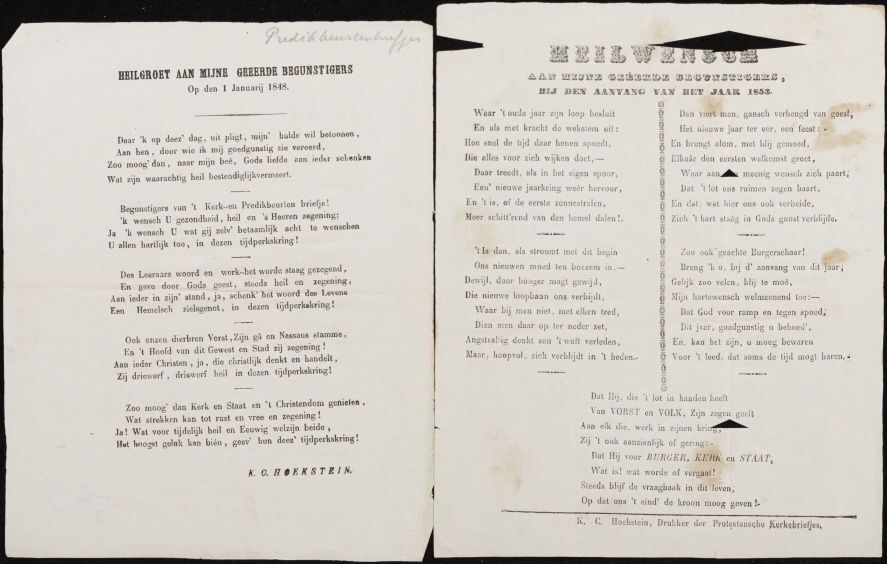 Predikbeurtenbriefjes
HEILGROET AAN MIJNE GEERDE BEGUNSTIGERS
Op den 1 Januarij 1848.
Daar 'k op deez' dag, uit pligt, mijn' hulde wil betoonen,
Aan hen, door wie ik mij goedgunstig zie vereerd,
Zoo moog' dan, naar mijn beê, Gods liefde aan ieder schenken
Wat zijn waarachtig heil bestendiglijkvermeert.
Begunstigers van 't Kerk-en Predikbeurten briefje!
'k wensch U gezondheid, heil en 's Heeren zegening;
Ja 'k wensch U wat gij zelv' betaamlijk acht te wenschen
U allen hartlijk toe, in dezen tijdperkskring!
Des Leeraars woord en werk-het worde staag gezegend,
En geve door Gods geest, steeds heil en zegening,
Aan ieder in zijn' stand, ja, schenk' het woord des Levens
Een Hemelsch zielsgenot, in dezen tijdperkskring!
Ook onzen dierbren Vorst, Zijn gâ en Nassaus stamme,
En 't Hoofd van dit Gewest en Stad zij zegening!
Aan ieder Christen, ja, die christlijk denkt en handelt,
Zij driewerf, driewerf heil in dezen tijdperkskring!
Zoo moog' dan Kerk en Staat en 't Christendom genieten,
Wat strekken kan tot rust en vree en zegening!
Ja! Wat voor tijdelijk heil en Eeuwig welzijn beide,
Het hoogst geluk kan biên, geev' hun deez' tijdperkskring!
K. C. HOEKSTEIN.
HEILWENSCH
AAN MIJNE GEËERDE BEGUNSTIGERS,
BIJ DEN AANVANG VAN HET JAAR 1853.
Waar 't oude jaar zijn loop besluit
En als met kracht de wekstem uit:
Hoe snel de tijd daar henen spoedt,
Die alles voor zich wijken doet,—
Daar treedt, als in het eigen spoor,
Een' nieuwe jaarkring wéér hervoor,
En 't is, of de eerste zonnestralen,
Meer schitt'rend van den hemel dalen!.
't Is dan, als stroomt met dit begin
Ons nieuwen moed ten boezem in.—
Dewijl, door hooger magt gewijd,
Die nieuwe loopbaan ons verbijdt,
Waar bij men niet, met elken tred,
Dien men daar op ter neder zet,
Angstvallig denkt aan 't wuft verleden,
Maar, hoopvol, zich verblijdt in 't heden.-
Dan viert men, gansch verheugd van geest,
Het nieuwe jaar ter eer, een feest:-
En brengt alom, met blij gemoed,
Elkaâr den eersten welkomst groet,
Waar aan meenig wensch zich paart,
Dat 't lot ons ruimen zegen baart,
En dat, wat hier ons ook verbeide,
Zich 't hart staâg in Gods gunst verblijde.
Zoo ook geachte Burgerschaar!
Breng 'k u, bij d' aanvang van dit jaar,
Gelijk zoo velen, blij te moê,
Mijn hartewensch welmeenend toe:—
Dat God voor ramp en tegen spoed,
Dit jaar, goedgunstig u behoed',
En, kan het zijn, u moog bewaren
Voor 't leed, dat soms de tijd mogt baren.-
Dat Hij, die 't lot in handen heeft
Van VORST en VOLK, Zijn zegen geeft
Aan elk die, werk in zijnen kring,
Zij 't ook aanzienlijk of gering:-
Dat Hij voor BURGER, KERK en STAAT,
Wat is! wat worde of vergaat!
Steeds blijf de vraagbaak in dit leven,
Op dat ons 't eind' de kroon moog geven!-
K. C. Hoekstein, Drukker der Protestansche Kerkebriefjes.